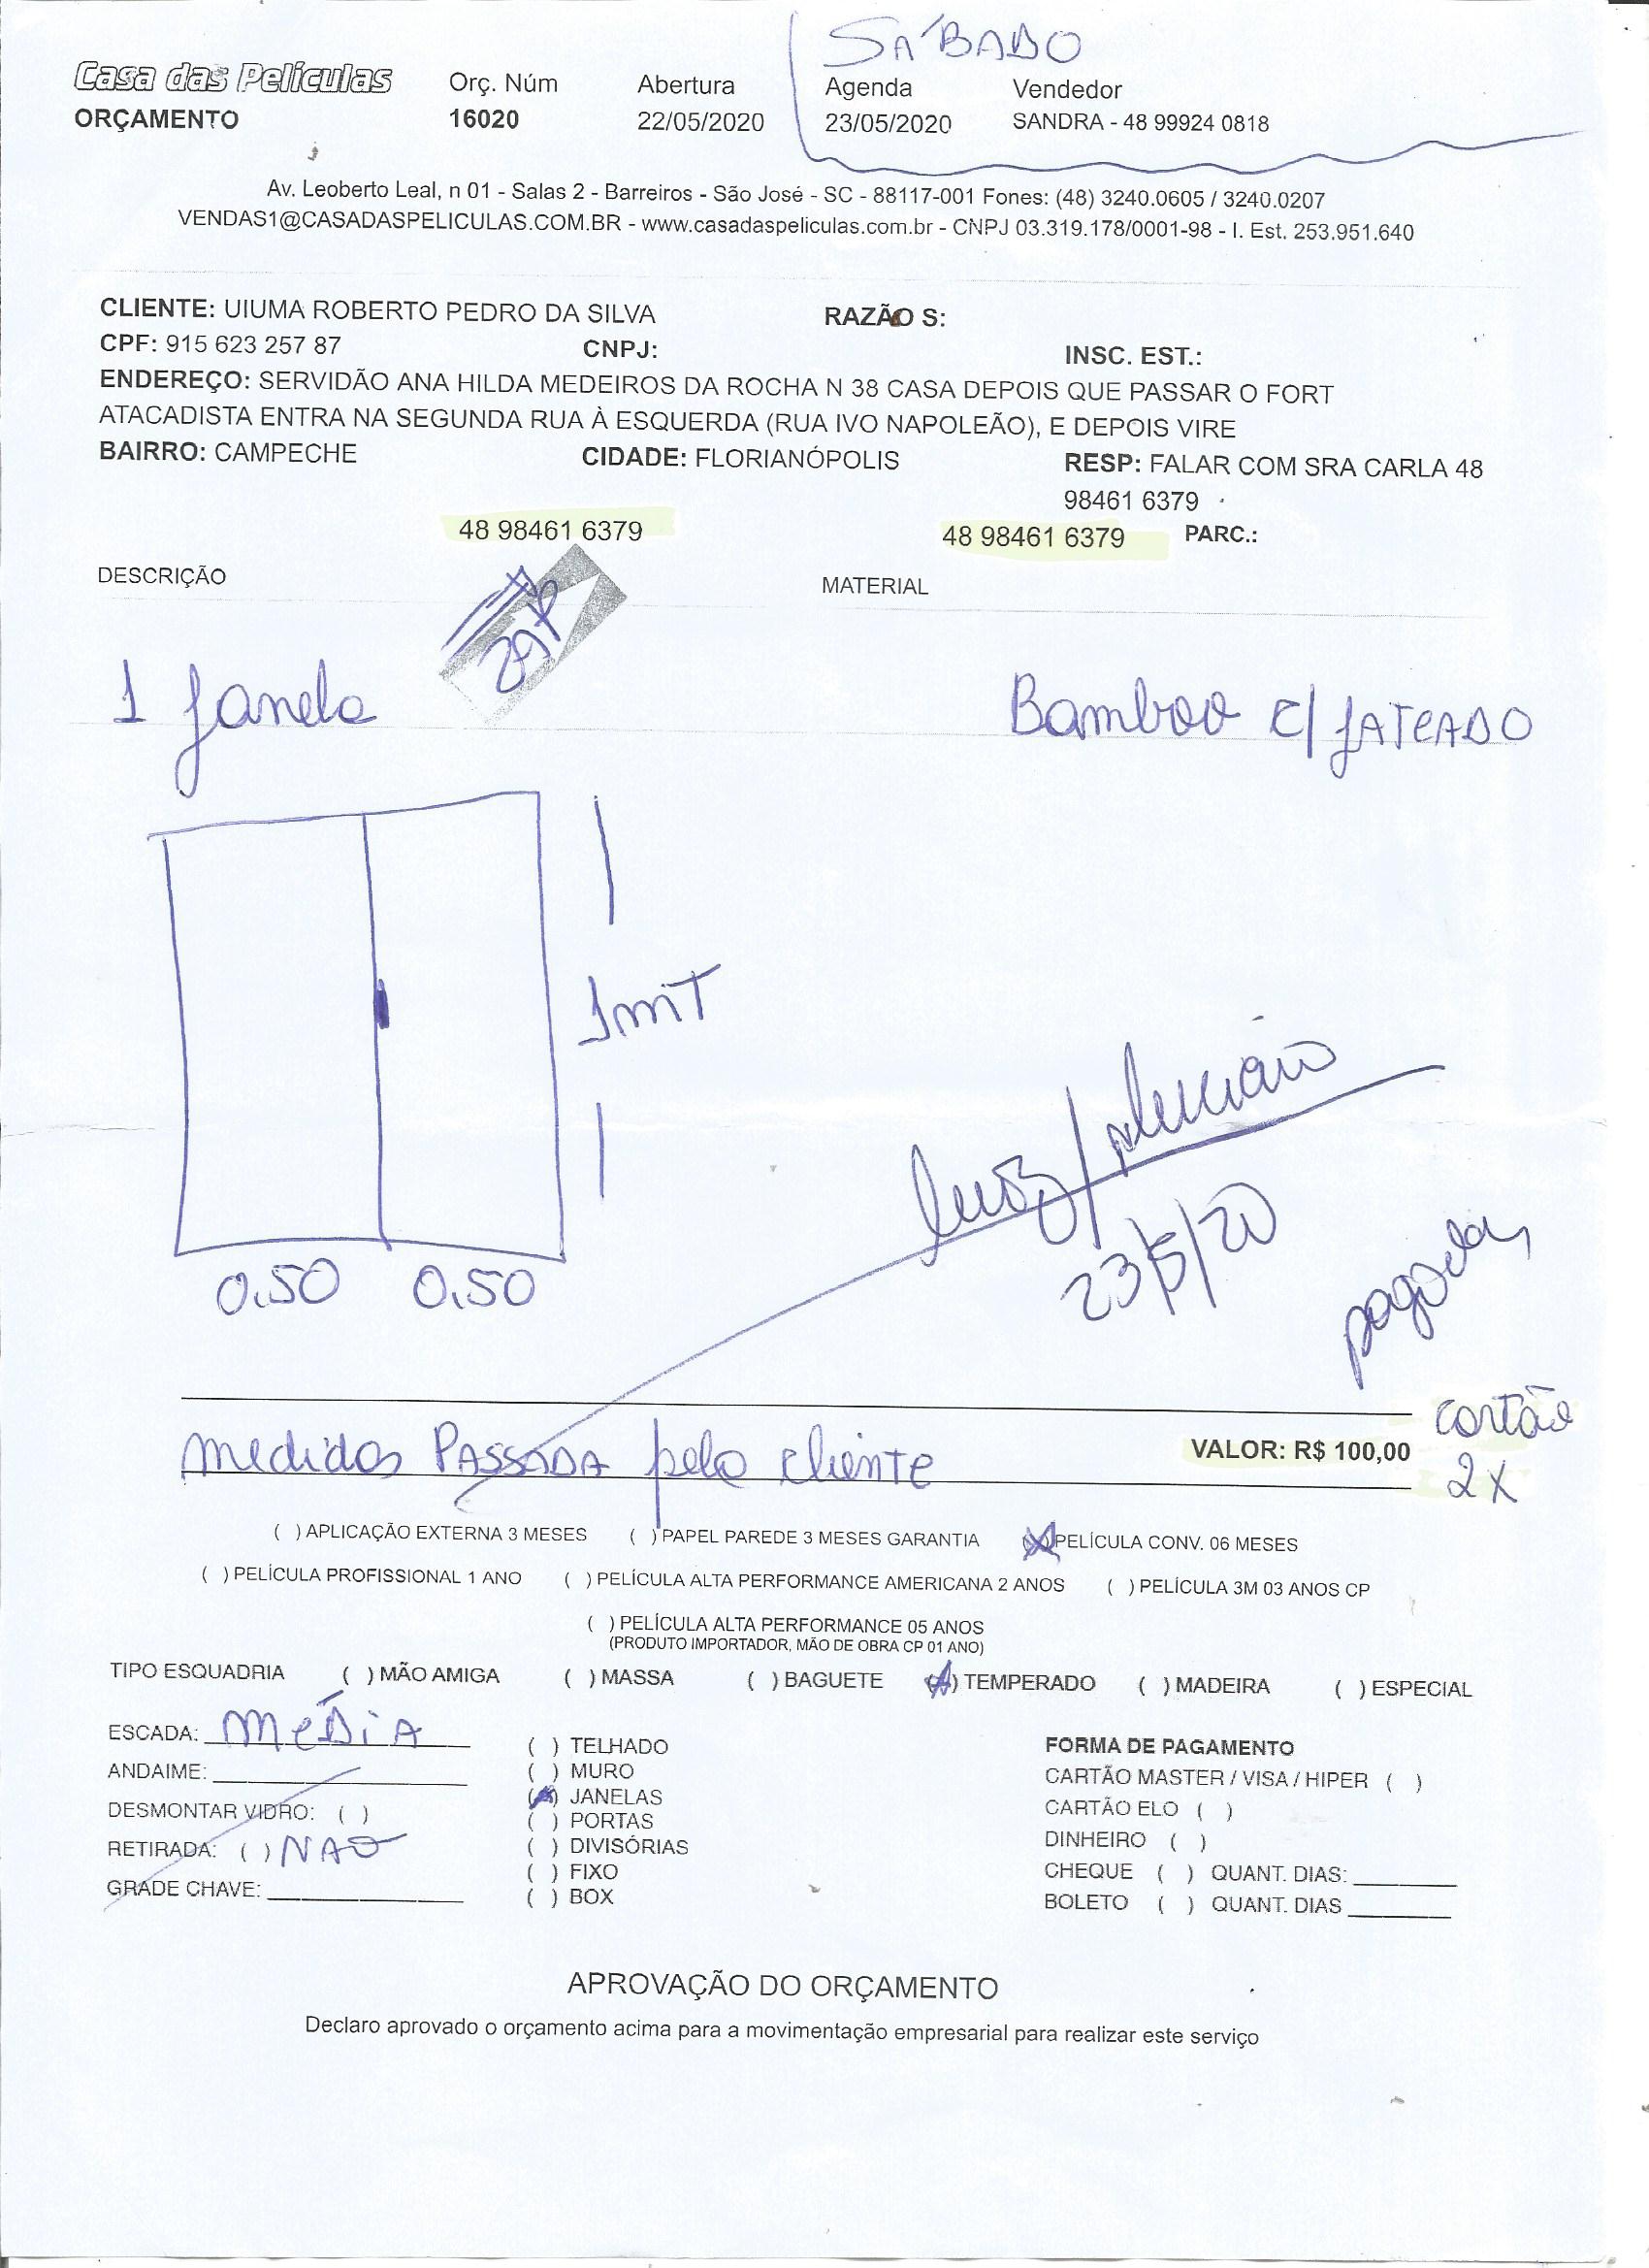 SÁBADO
Casa das Películas Orç. Núm Abertura Agenda Vendedor
ORÇAMENTO 16020 22/05/2020 23/05/2020 SANDRA - 48 99924 0818
Av. Leoberto Leal, n 01 - Salas 2 - Barreiros - São José - SC - 88117-001 Fones: (48) 3240.0605 / 3240.0207
VENDAS1@CASADASPELICULAS.COM.BR - www.casadaspeliculas.com.br - CNPJ 03.319.178/0001-98 - I. Est. 253.951.640
CLIENTE: UIUMA ROBERTO PEDRO DA SILVA RAZÃO S:
CPF: 915 623 257 87 CNPJ: INSC. EST.:
ENDEREÇO: SERVIDÃO ANA HILDA MEDEIROS DA ROCHA N 38 CASA DEPOIS QUE PASSAR O FORT
ATACADISTA ENTRA NA SEGUNDA RUA À ESQUERDA (RUA IVO NAPOLEÃO), E DEPOIS VIRE
BAIRRO: CAMPECHE CIDADE: FLORIANÓPOLIS RESP: FALAR COM SRA CARLA 48
98461 6379
48 98461 6379 48 98461 6379 PARC.:
DESCRIÇÃO MATERIAL
1 Janela Bamboo c/ JATEADO
1mT
23/5/20
0.50 0.50
cartão
medidas PASSADA pelo cliente VALOR: R$ 100,00
2X
( ) APLICAÇÃO EXTERNA 3 MESES ( ) PAPEL PAREDE 3 MESES GARANTIA (X) PELÍCULA CONV. 06 MESES
( ) PELÍCULA PROFISSIONAL 1 ANO ( ) PELÍCULA ALTA PERFORMANCE AMERICANA 2 ANOS ( ) PELÍCULA 3M 03 ANOS CP
( ) PELÍCULA ALTA PERFORMANCE 05 ANOS
(PRODUTO IMPORTADOR, MÃO DE OBRA CP 01 ANO)
TIPO ESQUADRIA ( ) MÃO AMIGA ( ) MASSA ( ) BAGUETE (X) TEMPERADO ( ) MADEIRA ( ) ESPECIAL
ESCADA: MÉDIA
ANDAIME:
DESMONTAR VIDRO: ( )
RETIRADA: ( ) NAO
GRADE CHAVE:
( ) TELHADO
( ) MURO
(X) JANELAS
( ) PORTAS
( ) DIVISÓRIAS
( ) FIXO
( ) BOX
FORMA DE PAGAMENTO
CARTÃO MASTER / VISA / HIPER ( )
CARTÃO ELO ( )
DINHEIRO ( )
CHEQUE ( ) QUANT. DIAS:
BOLETO ( ) QUANT. DIAS
APROVAÇÃO DO ORÇAMENTO
Declaro aprovado o orçamento acima para a movimentação empresarial para realizar este serviço